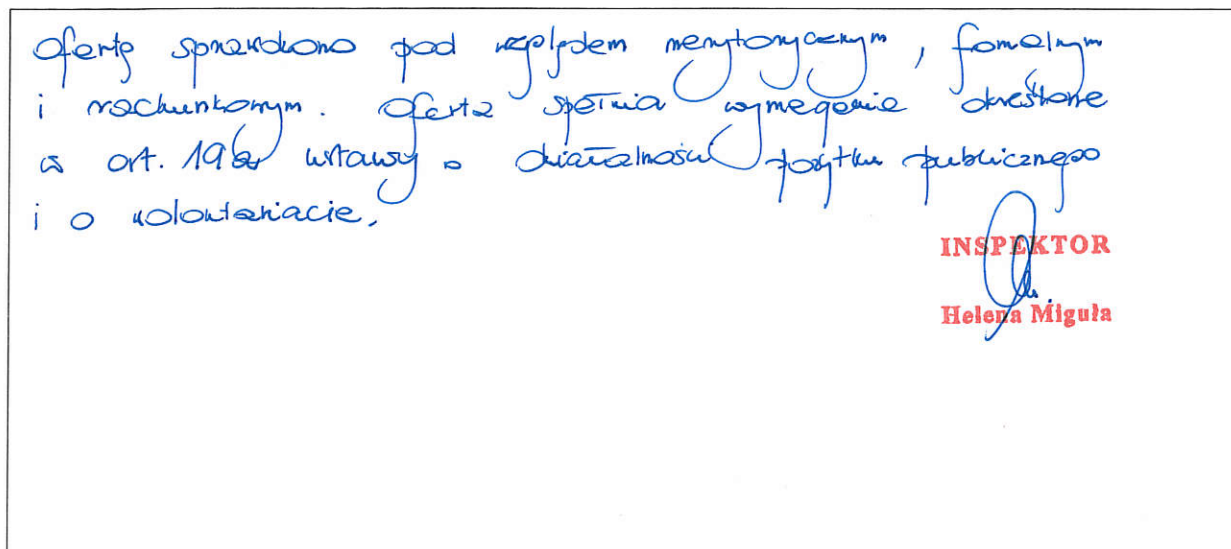 Ofertę sprawdzono pod względem merytorycznym, formalnym
i rachunkowym. Oferta spełnia wymagania określone
w art. 19a ustawy o działalności pożytku publicznego
i o wolontariacie.
INSPEKTOR
Helena Miguła